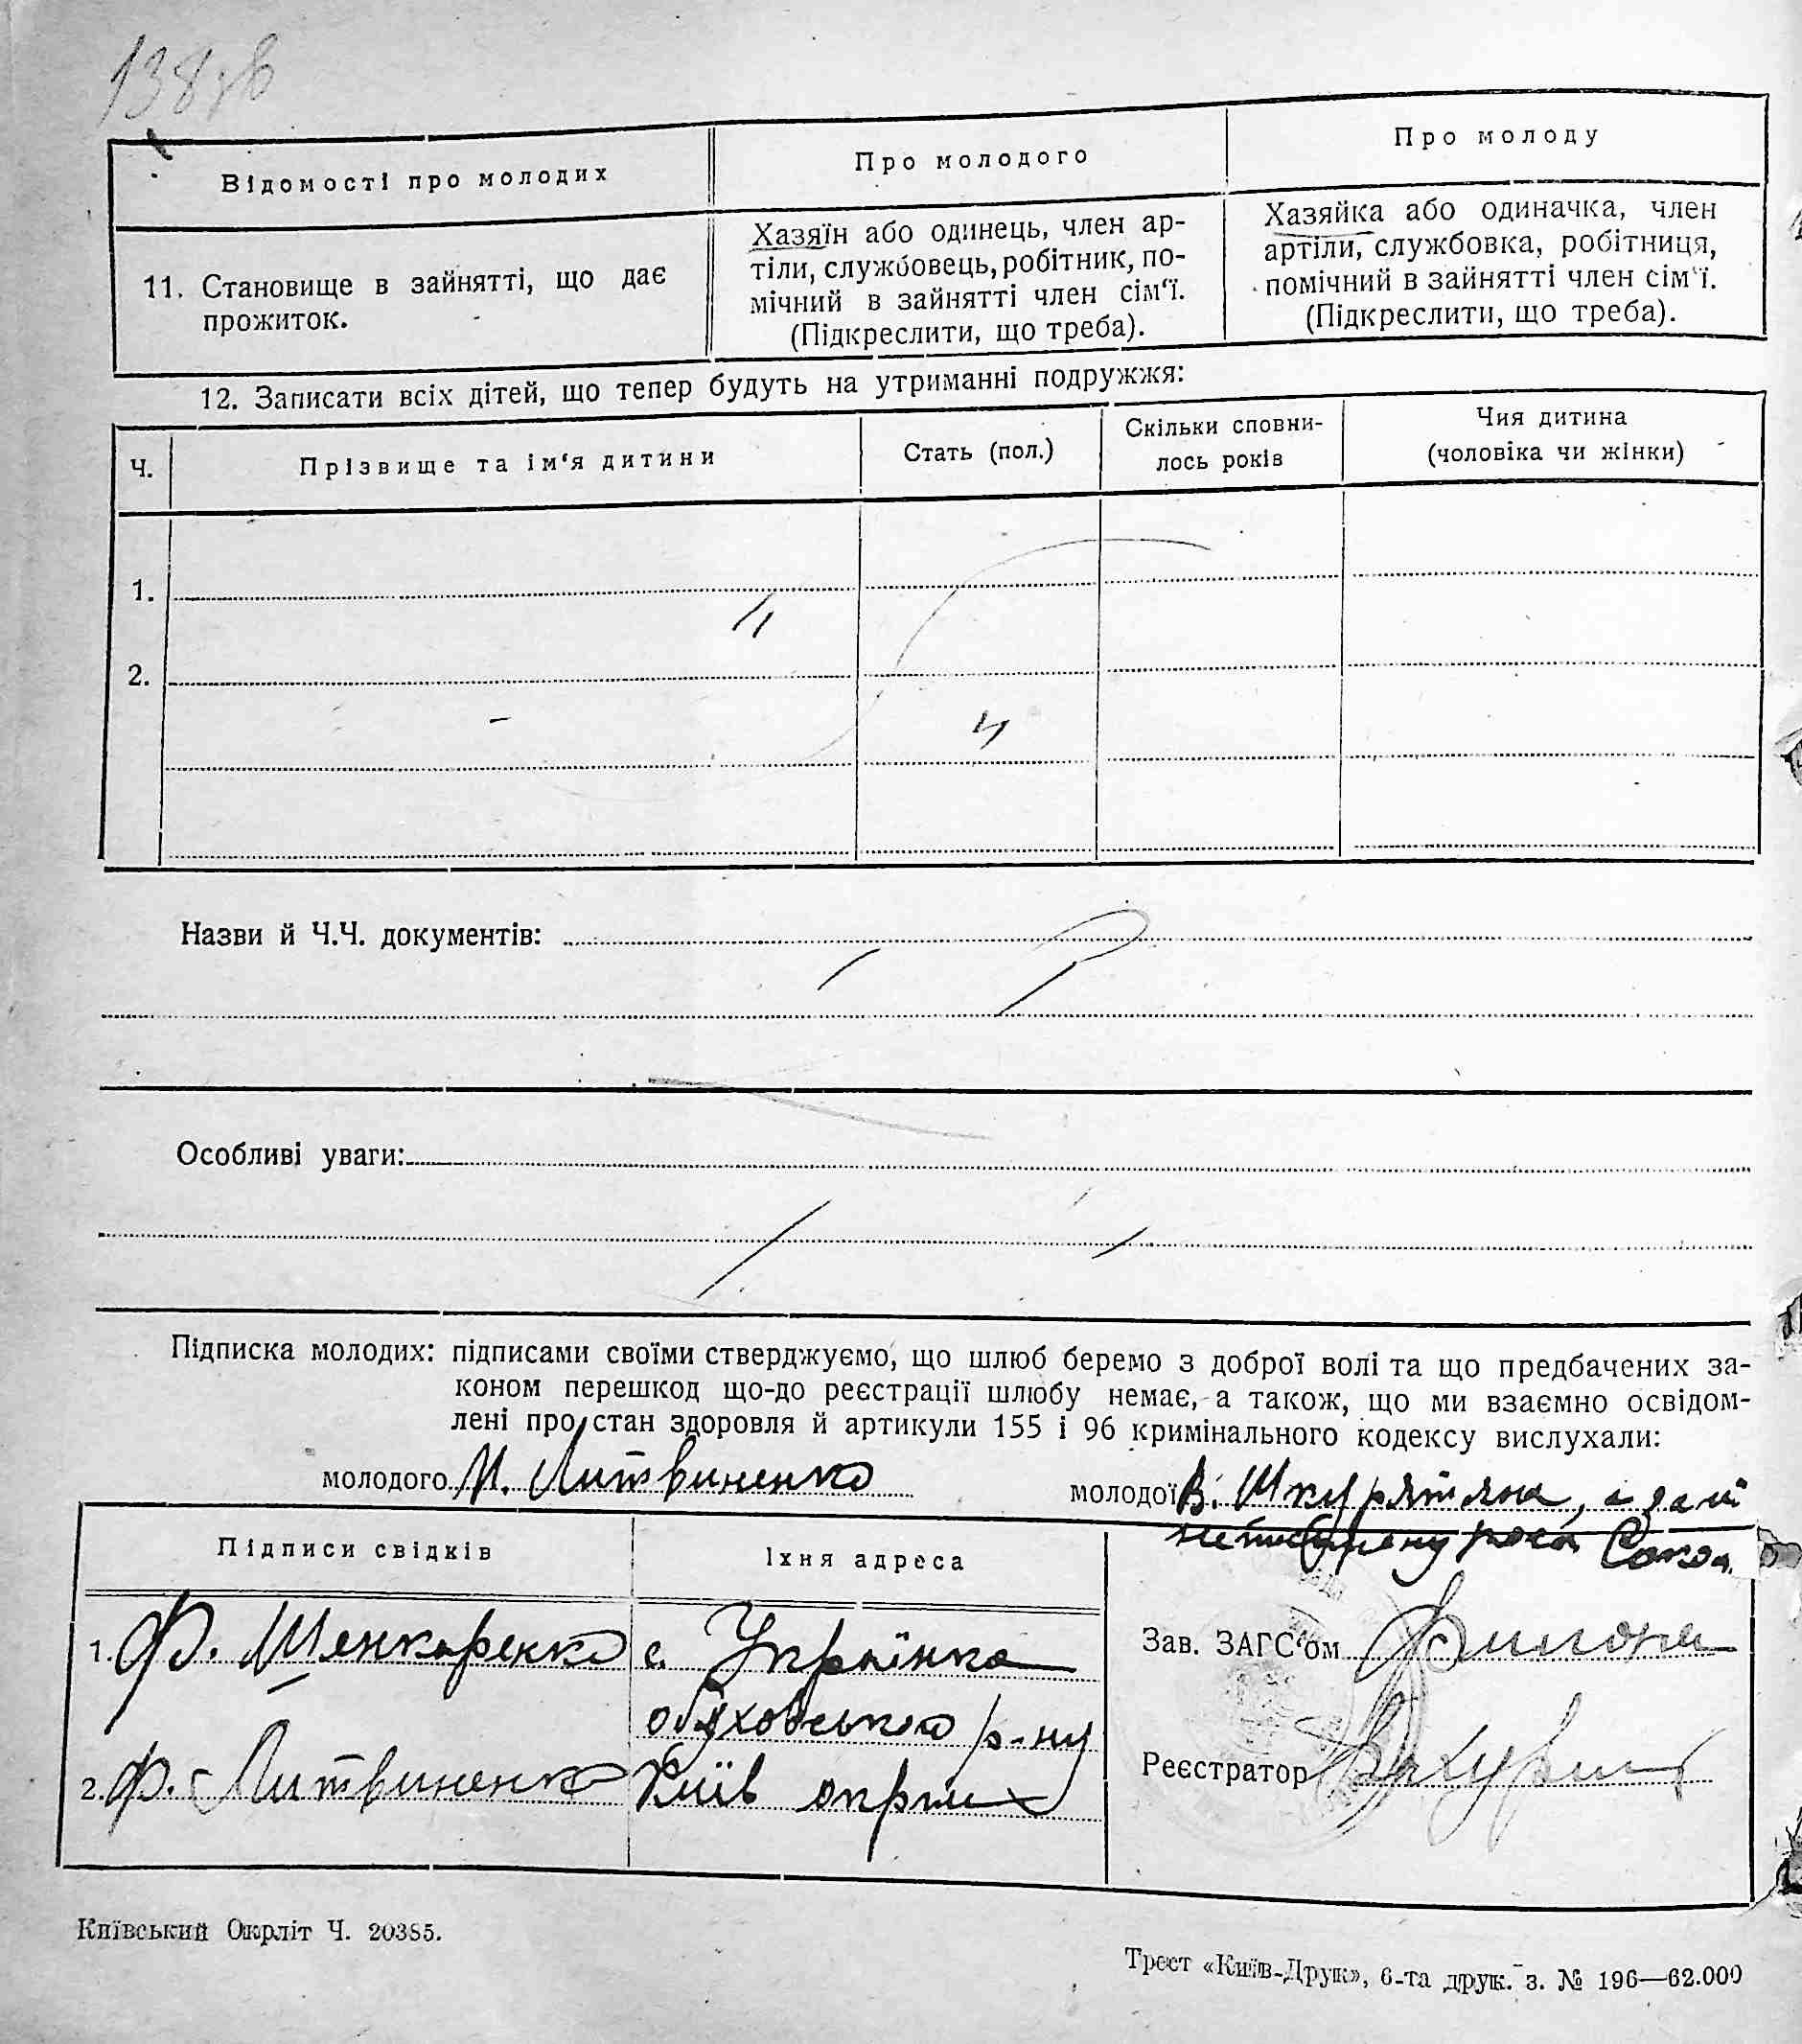 138зв
Відомості про молодих
Про молодого
Про молоду
11. Становище в зайнятті, що дає
прожиток.
Хазяїн або одинець, член ар-
тіли, службовець, робітник, по-
мічний в зайнятті член сім'ї.
(Підкреслити, що треба).
Хазяйка або одиначка, член
артіли, службовка, робітниця,
помічний в зайнятті член сім'ї.
(Підкреслити, що треба).
12. Записати всіх дітей, що тепер будуть на утриманні подружжя:
Ч.
Прізвище та ім'я дитини
Стать (пол.)
Скільки сповни-
лось років
Чия дитина
(чоловіка чи жінки)
1.
2.
Назви й Ч.Ч. документів:
Особливі уваги:
Підписка молодих: підписами своїми стверджуємо, що шлюб беремо з доброї волі та що предбачених за-
коном перешкод що-до реєстрації шлюбу немає, а також, що ми взаємно освідом-
лені про стан здоровля й артикули 155 і 96 кримінального кодексу вислухали:
молодого И. Литвиненко
молодої В. Шкурятяна, а за її
рос.
Підписи свідків
Їхня адреса
1. Ф. Шенкаренко
с. Українка
обуховського р-ну
2. Ф. Литвиненко
Київ округи
Зав. ЗАГС'ом
Реєстратор
Київський Окрліт Ч. 20385.
Трест «Київ-Друк», 6-та друк. з. № 196—62.000